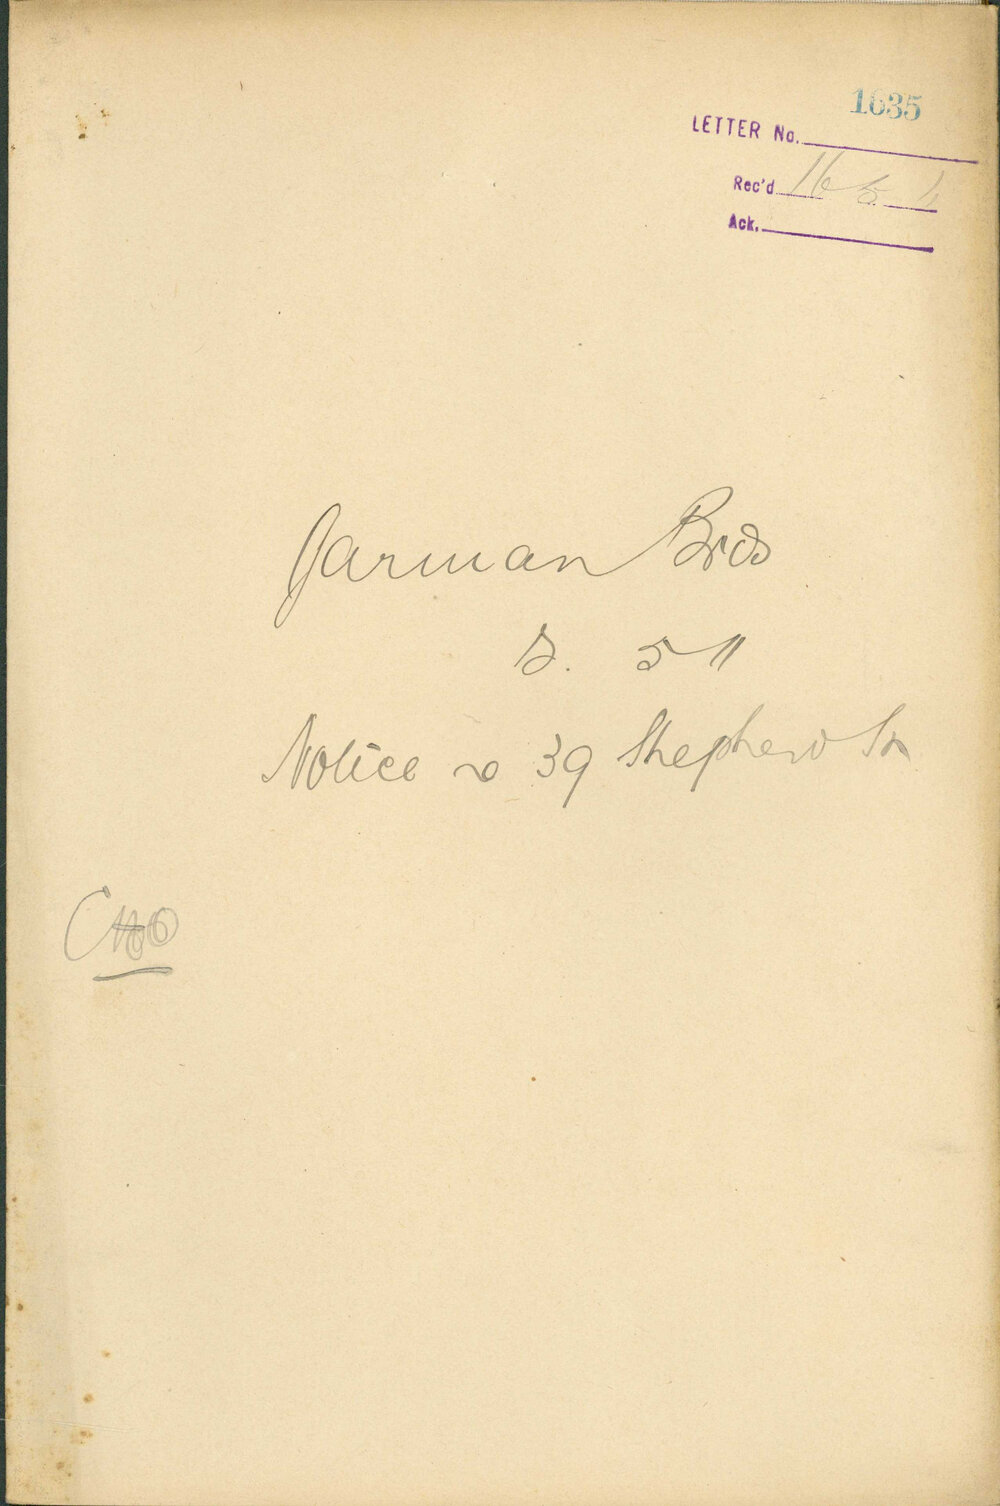 1635
LETTER No.
Rec'd 16 5 11
Ack.
Jarman Bros
5 11
Notice re 39 Shepherd St